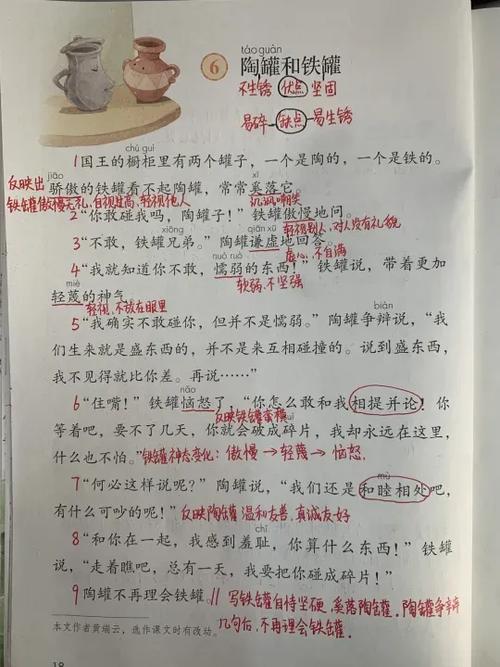 táo guàn
6 陶罐和铁罐
不生锈 优点 坚固
易碎 缺点 易生锈
chú guì
1国王的橱柜里有两个罐子，一个是陶的，一个是铁的。
jiāo xī
反映出 骄傲的铁罐看不起陶罐，常常奚落它。
铁罐傲慢无礼，自视甚高，轻视他人 讥讽嘲笑
2“你敢碰我吗，陶罐子！”铁罐傲慢地问。
xiōng qiān xū 轻视别人，对人没有礼貌
3“不敢，铁罐兄弟。”陶罐谦虚地回答。
nuò ruò 虚心，不自满
4“我就知道你不敢，懦弱的东西！”铁罐说，带着更加
miè 软弱，不坚强
轻蔑的神气。
轻视，不放在眼里 biàn
5“我确实不敢碰你，但并不是懦弱。”陶罐争辩说，“我
们生来就是盛东西的，并不是来互相碰撞的。说到盛东西，
我不见得就比你差。再说……”
nǎo
6“住嘴！”铁罐恼怒了，“你怎么敢和我相提并论！你
反映铁罐蛮横
等着吧，要不了几天，你就会破成碎片，我却永远在这里，
什么也不怕。”铁罐神态变化：傲慢→轻蔑→恼怒.
mù
7“何必这样说呢？”陶罐说，“我们还是和睦相处吧，
有什么可吵的呢！”反映陶罐温和友善，真诚友好
chǐ
8“和你在一起，我感到羞耻，你算什么东西！”铁罐
说，“走着瞧吧，总有一天，我要把你碰成碎片！”
9陶罐不再理会铁罐。// 写铁罐自恃坚硬，奚落陶罐，陶罐争辩
几句后，不再理会铁罐.
本文作者黄瑞云，选作课文时有改动。
18